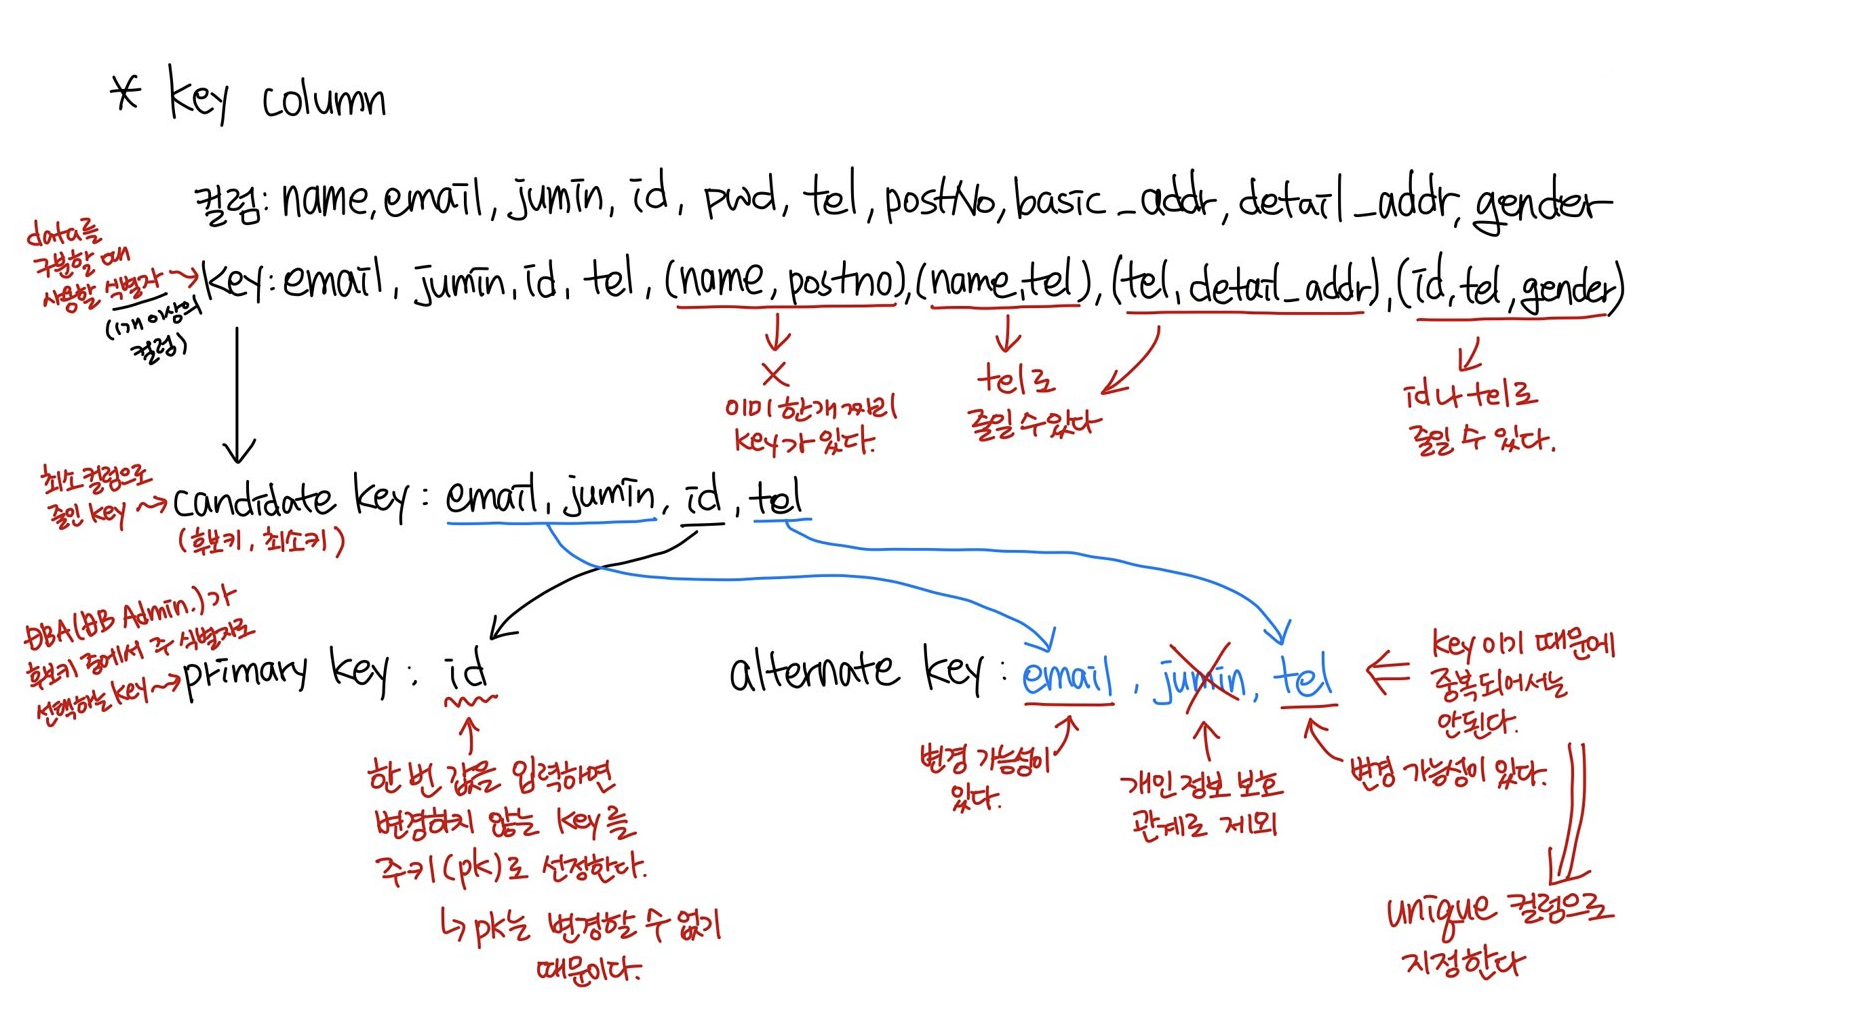 * key column
컬럼: name, email, jumin, id, pwd, tel, postNo, basic_addr, detail_addr, gender
data를
구분할 때
사용할 식별자
(1개 이상의
컬럼)
key: email, jumin, id, tel, (name, postno), (name, tel), (tel, detail_addr), (id, tel, gender)
X
이미 한개 짜리
key가 있다.
tel로
줄일 수 있다
id나 tel로
줄일 수 있다.
최소 컬럼으로
줄인 key
candidate key: email, jumin, id, tel
(후보키, 최소키)
DBA(DB Admin.)가
후보키 중에서 주 식별자로
선택하는 key
primary key: id
alternate key: email, jumin, tel
key 이기 때문에
중복되어서는
안된다.
한 번 값을 입력하면
변경하지 않는 key를
주키(pk)로 선정한다.
pk는 변경할 수 없기
때문이다.
변경 가능성이
있다.
개인 정보 보호
관계로 제외
변경 가능성이 있다.
unique 컬럼으로
지정한다